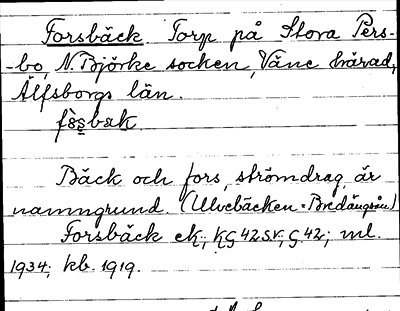 Forsbäck. Torp på Stora Pers-
-bo, N. Björke socken, Väne härad,
Älfsborgs län.
Bäck och fors, strömdrag, är
namngrund. (Ulvebäcken = Bredängsån.)
Forsbäck ek.; KG 42 SV; G. 42; ml.
1934; kb. 1919.